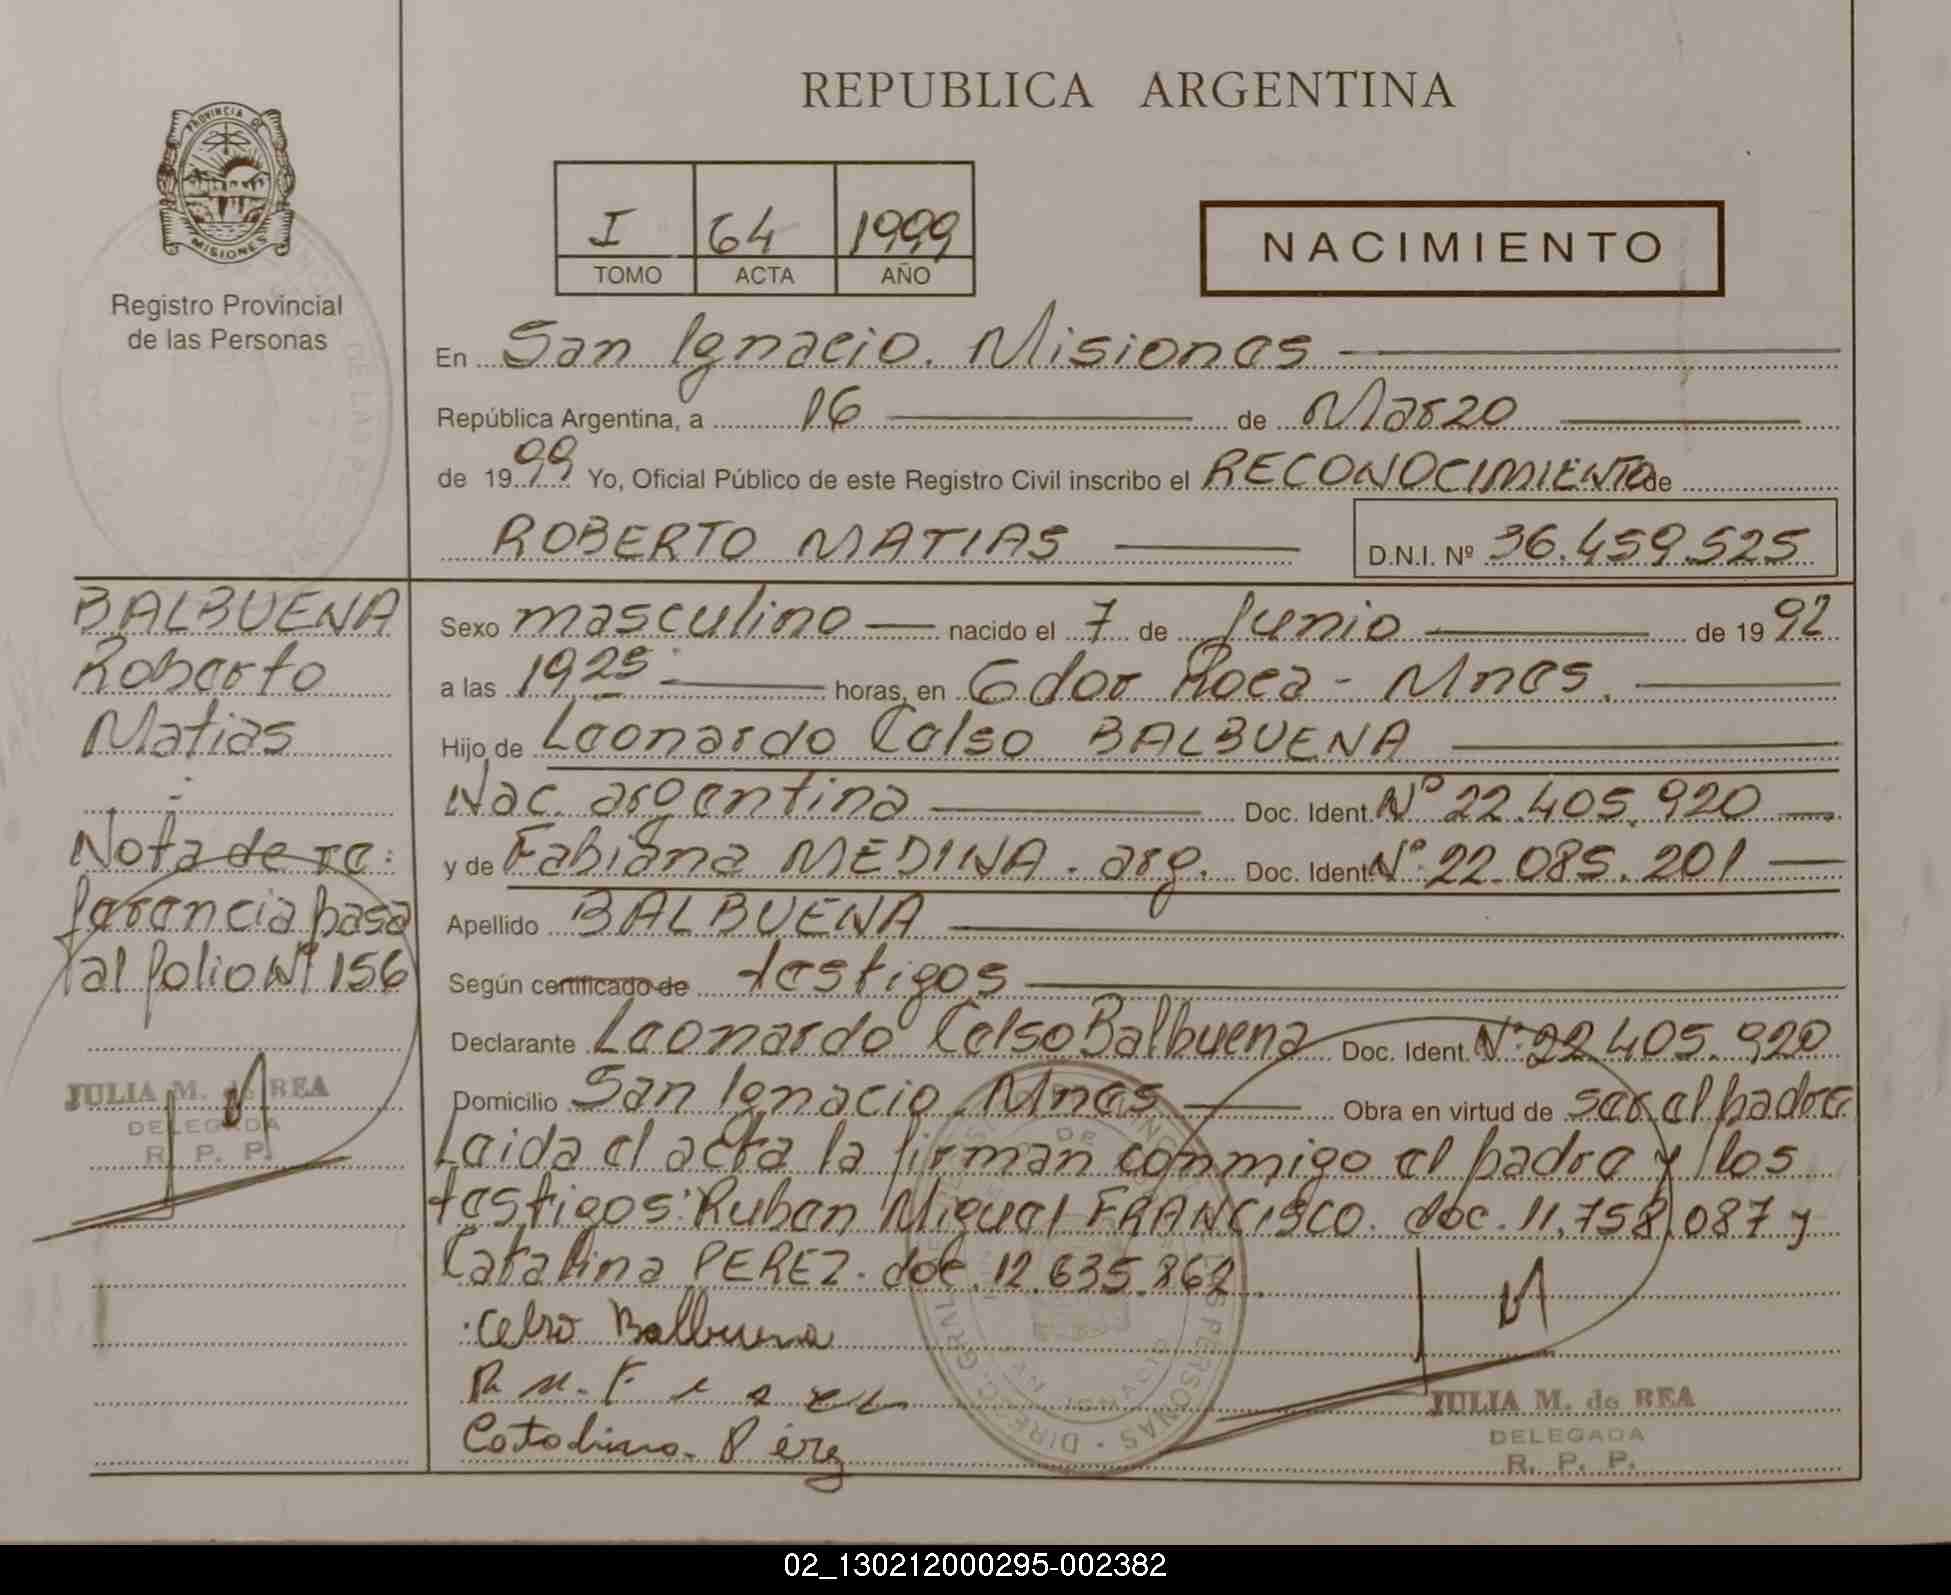 REPUBLICA ARGENTINA
PROVINCIA DE
MISIONES
Registro Provincial
de las Personas
I 64 1999
TOMO ACTA AÑO
NACIMIENTO
En San Ignacio. Misiones
República Argentina, a 16 de Marzo
de 1999 Yo, Oficial Público de este Registro Civil inscribo el RECONOCIMIENTO de
ROBERTO MATIAS D.N.I. Nº 36.459.525
BALBUENA
Roberto
Matias
Nota de re:
ferencia pasa
al folio Nº 156
JULIA M. de REA
DELEGADA
R. P. P.
Sexo masculino nacido el 7 de Junio de 1992
a las 1925 horas, en Gdor Roca - Mnes.
Hijo de Leonardo Celso BALBUENA
Nac. argentina Doc. Ident. Nº 22.405.920
y de Fabiana MEDINA. arg. Doc. Ident. Nº 22.085.201
Apellido BALBUENA
Según certificado de testigos
Declarante Leonardo Celso Balbuena Doc. Ident. Nº 22 405.920
Domicilio San Ignacio. Mnes Obra en virtud de ser el padre
Leida el acta la firman conmigo el padre y los
testigos: Ruben Miguel FRANCISCO. doc. 11.758.087 y
Catalina PEREZ. doc. 12.635.862
Celso Balbuena
Catalina Pérez
JULIA M. de REA
DELEGADA
R. P. P.
02_130212000295-002382